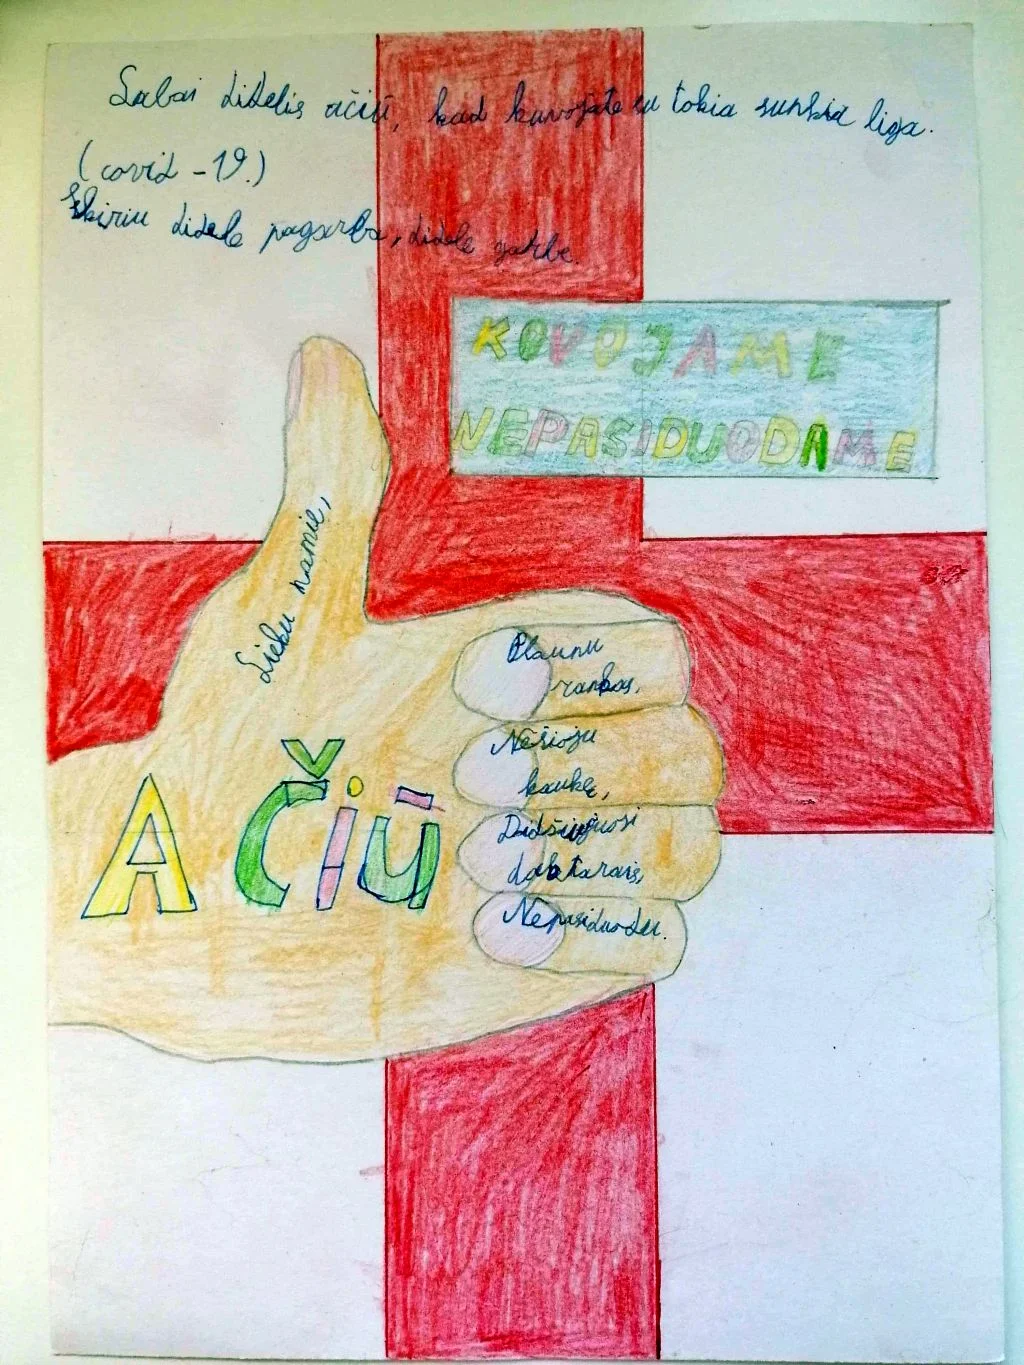 Labai didelis ačiū, kad kovojate su tokia sunkia liga.
(covid-19.)
Skiriu didele pagarba, didele garbe.
KOVOJAME
NEPASIDUODAME
Lieku namie,
Plaunu
rankas,
Nešioju
kaukę,
Didžiuojuosi
daktarais,
Nepasiduodu.
AČIŪ